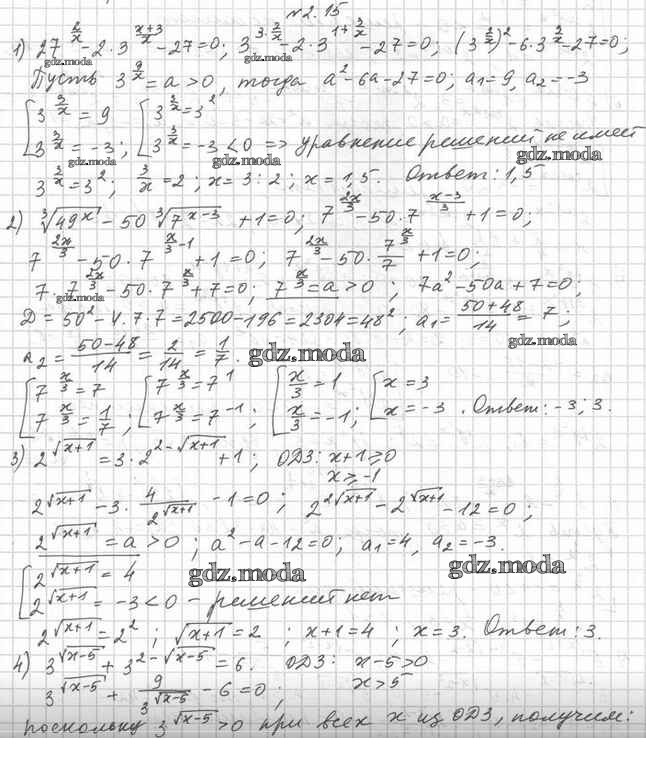 №2.15
1) 27^(2/x) - 2·3^((x+3)/x) - 27=0; 3^(3·2/x) - 2·3^(1+3/x) - 27=0; (3^(3/x))² - 6·3^(3/x) - 27=0;
gdz.moda gdz.moda
Пусть 3^(9/x) = a > 0, тогда a² - 6a - 27=0; a₁=9, a₂=-3
[3^(3/x) = 9 [3^(3/x) = 3²
3^(3/x) = -3; 3^(3/x) = -3 < 0 => уравнение решений не имеет
gdz.moda gdz.moda
3^(3/x) = 3²; 3/x = 2; x = 3:2; x = 1,5. Ответ: 1,5
2) ∛(49^x) - 50 ∛(7^(x-3)) + 1=0; 7^(2x/3) - 50·7^((x-3)/3) + 1=0;
7^(2x/3) - 50·7^(x/3-1) + 1=0; 7^(2x/3) - 50·7^(x/3)/7 + 1=0;
7·7^(2x/3) - 50·7^(x/3) + 7=0; 7^(x/3) = a > 0; 7a² - 50a + 7=0;
gdz.moda
D = 50² - 4·7·7 = 2500 - 196 = 2304 = 48²; a₁ = (50+48)/14 = 7;
gdz.moda
a₂ = (50-48)/14 = 2/14 = 1/7. gdz.moda
[7^(x/3) = 7 [7^(x/3) = 7¹ [x/3 = 1 [x = 3
7^(x/3) = 1/7; 7^(x/3) = 7^(-1); x/3 = -1; x = -3. Ответ: -3; 3.
3) 2^√(x+1) = 3·2^(2-√(x+1)) + 1; ОДЗ: x+1 ⩾ 0
x ⩾ -1
2^√(x+1) - 3·4/2^√(x+1) - 1=0; 2^(2√(x+1)) - 2^√(x+1) - 12=0;
2^√(x+1) = a > 0; a² - a - 12=0; a₁=4, a₂=-3.
gdz.moda gdz.moda
[2^√(x+1) = 4
2^√(x+1) = -3 < 0 - решений нет
2^√(x+1) = 2²; √(x+1) = 2; x+1=4; x=3. Ответ: 3.
4) 3^√(x-5) + 3^(2-√(x-5)) = 6. ОДЗ: x-5>0
x>5
3^√(x-5) + 9/3^√(x-5) - 6=0;
поскольку 3^√(x-5) > 0 при всех x из ОДЗ, получим: